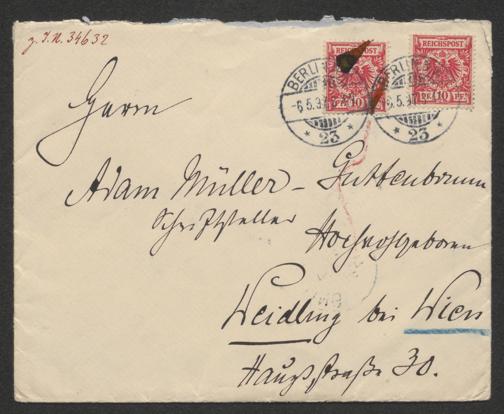 z. I. N. 34632
REICHSPOST
REICHSPOST
10 PF. 10
PF. 10 PF.
BERLIN
-6.5.97
* 23 *
-6.5.97
* 23 *
Herrn
Adam Müller-Guttenbrunn
Schriftsteller
Hochwohlgeboren
Weidling bei Wien
Hauptstraße 30.